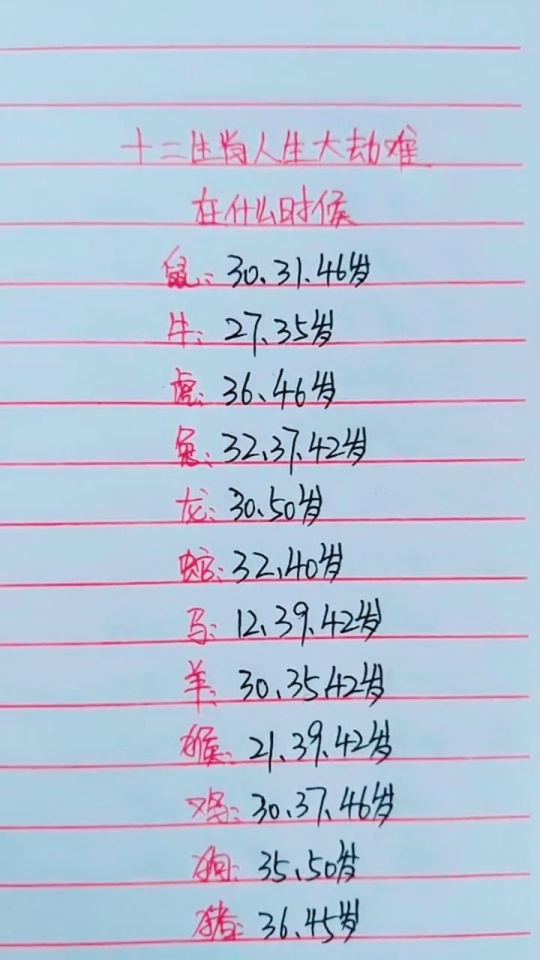 十二生肖人生大劫难
在什么时候
鼠：30、31、46岁
牛：27、35岁
虎：36、46岁
兔：32、37、42岁
龙：30、50岁
蛇：32、40岁
马：12、39、42岁
羊：30、35、42岁
猴：21、39、42岁
鸡：30、37、46岁
狗：35、50岁
猪：36、45岁